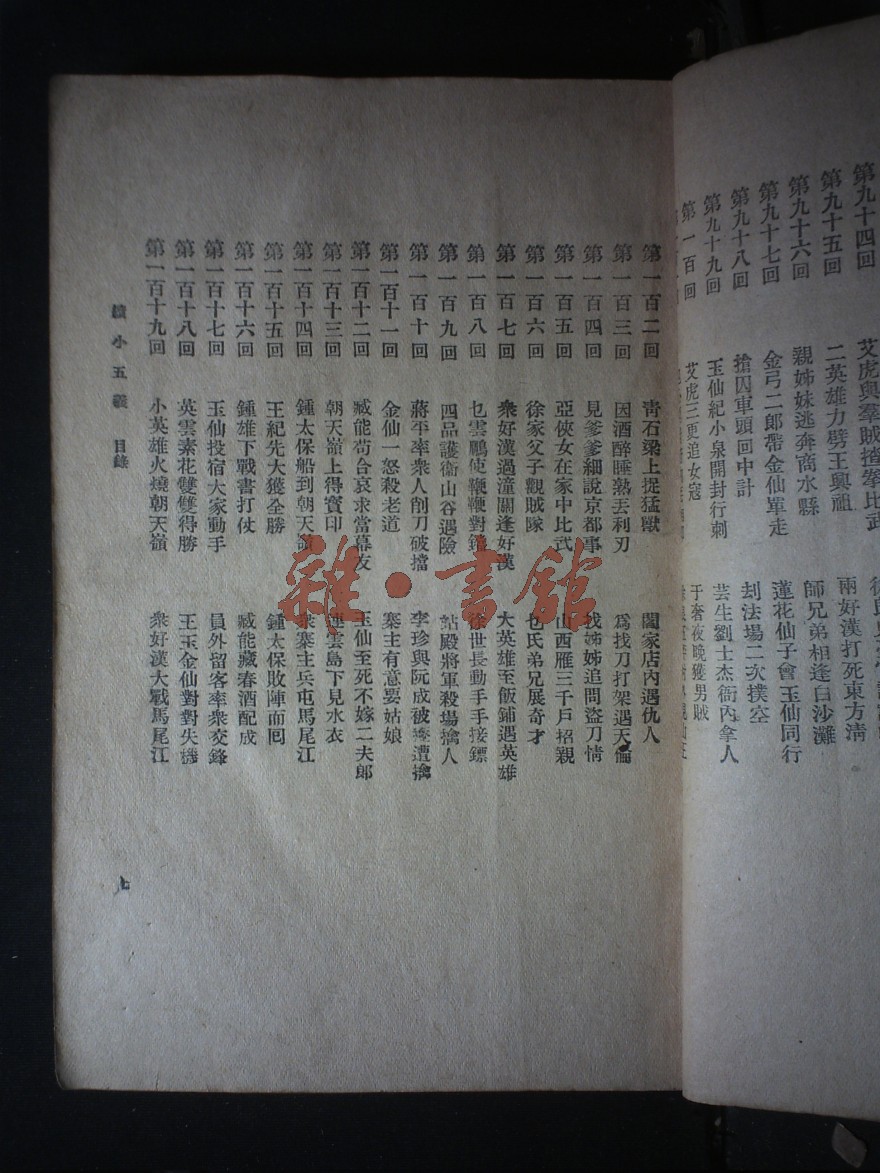 第九十四回 艾虎與羣賊揸拳比武
第九十五回 二英雄力劈王興祖 兩好漢打死東方清
第九十六回 親姊妹逃奔商水縣 師兄弟相逢白沙灘
第九十七回 金弓二郎帶金仙單走 蓮花仙子會玉仙同行
第九十八回 搶囚車頭回中計 刦法場二次撲空
第九十九回 玉仙紀小泉開封行刺 芸生劉士杰衙內拿人
第一百回 艾虎三更追女寇 于奢夜晚獲男賊
第一百二回 青石梁上捉猛獸 閤家店內遇仇人
第一百三回 因酒醉睡熟丟利刃 爲找刀打架遇天倫
第一百四回 見爹爹細說京都事 找姊姊追問盜刀情
第一百五回 亞俠女在家中比武 山西雁三千戶招親
第一百六回 徐家父子觀賊隊 乜氏弟兄展奇才
第一百七回 衆好漢過潼關逢好漢 大英雄至飯鋪遇英雄
第一百八回 乜雲鵬使鞭鞭對鐺 徐世長動手手接鏢
第一百九回 四品護衛山谷遇險 站殿將軍殺場擒人
第一百十回 蔣平率衆人削刀破擋 李珍與阮成被毒遭擒
第一百十一回 金仙一怒殺老道 寨主有意要姑娘
第一百十二回 臧能苟合哀求當幕友 玉仙至死不嫁二夫郎
第一百十三回 朝天嶺上得寶印 連雲島下見水衣
第一百十四回 鍾太保船到朝天嶺 衆寨主兵屯馬尾江
第一百十五回 王紀先大獲全勝 鍾太保敗陣而回
第一百十六回 鍾雄下戰書打仗 臧能藏春酒配成
第一百十七回 玉仙投宿大家動手 員外留客率衆交鋒
第一百十八回 英雲素花雙雙得勝 王玉金仙對對失機
第一百十九回 小英雄火燒朝天嶺 衆好漢大戰馬尾江
續小五義 目錄
七
雜·書館